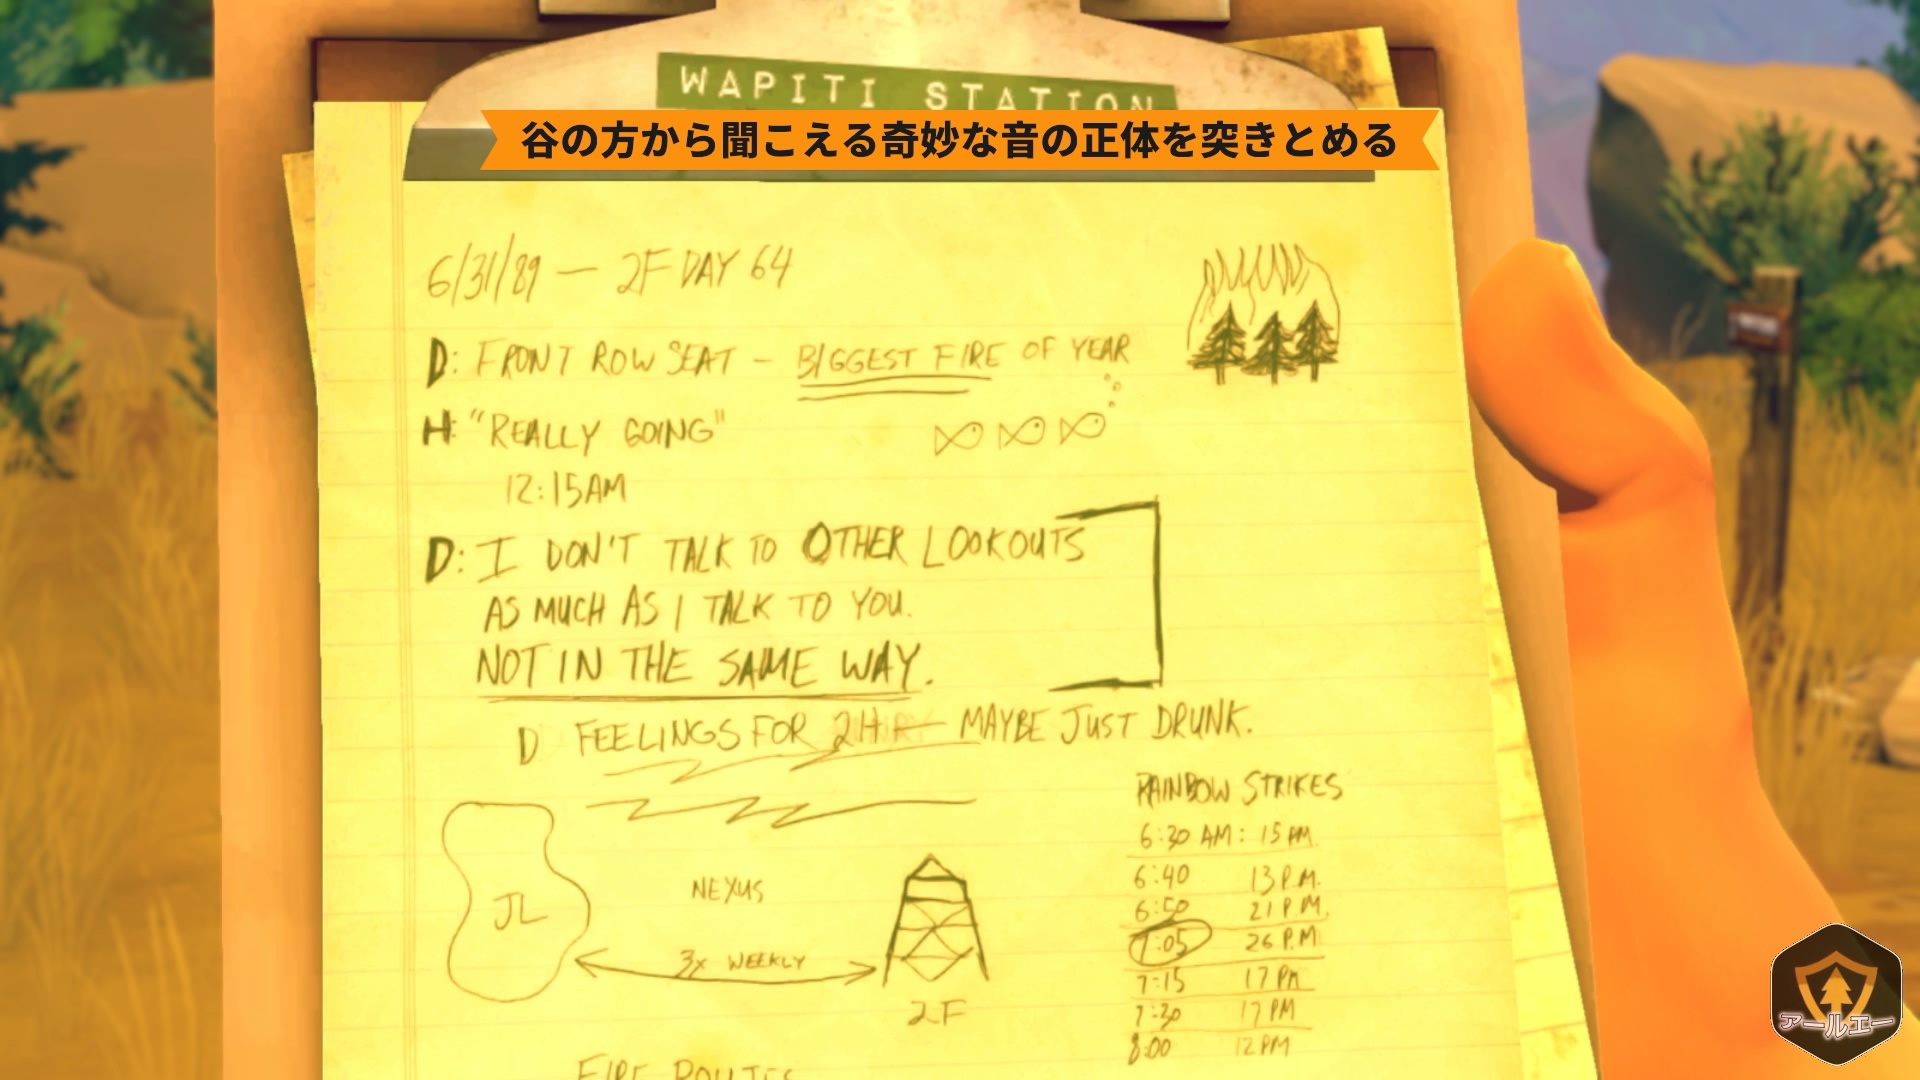 WAPITI STATION
谷の方から聞こえる奇妙な音の正体を突きとめる
6/31/89 — 2F DAY 64
D: FRONT ROW SEAT – BIGGEST FIRE OF YEAR
H: "REALLY GOING"
12:15AM
D: I DON'T TALK TO OTHER LOOKOUTS
AS MUCH AS I TALK TO YOU.
NOT IN THE SAME WAY.
D FEELINGS FOR 2H — MAYBE JUST DRUNK.
JL
NEXUS
3x WEEKLY
2F
RAINBOW STRIKES
6:30 AM: 15 PM.
6:40 13 P.M.
6:50 21 P.M.
7:05 26 P.M
7:15 17 PM
7:30 17 PM
8:00 12 PM
FIRE ROUTES
アールエー